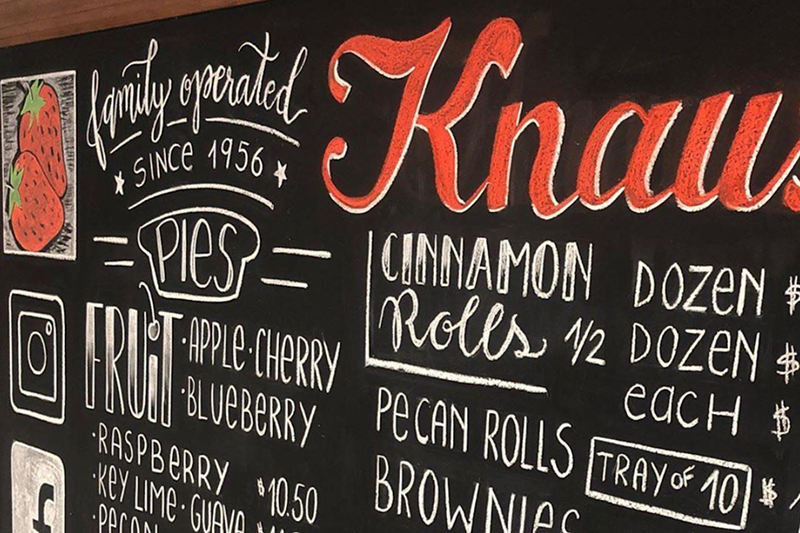 family operated
SINCE 1956
PIES
FRUIT
·APPLE·CHERRY
·BLUEBERRY
·RASPBERRY
·KEY LIME·GUAVA
$10.50
·PECAN
Knaus
CINNAMON
Rolls
DOZEN $
1/2 DOZEN $
each $
PECAN ROLLS
TRAY OF 10 $
BROWNIES
f